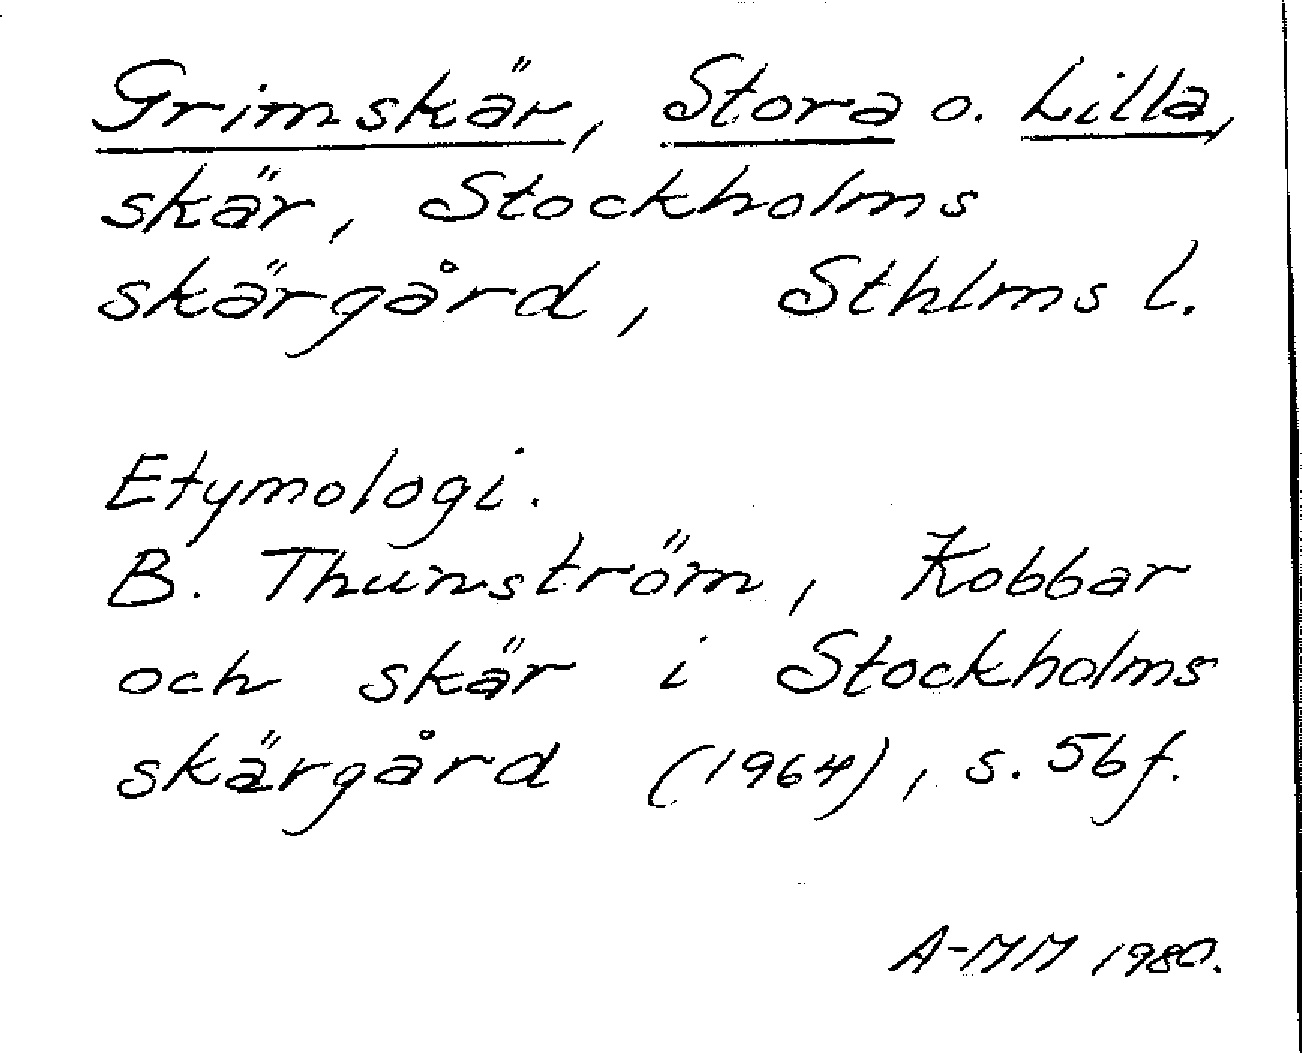 Grimskär, Stora o. Lilla,
skär, Stockholms
skärgård, Sthlms l.
Etymologi.
B. Thunström, Kobbar
och skär i Stockholms
skärgård (1964), s. 56f.
A-MM 1980.